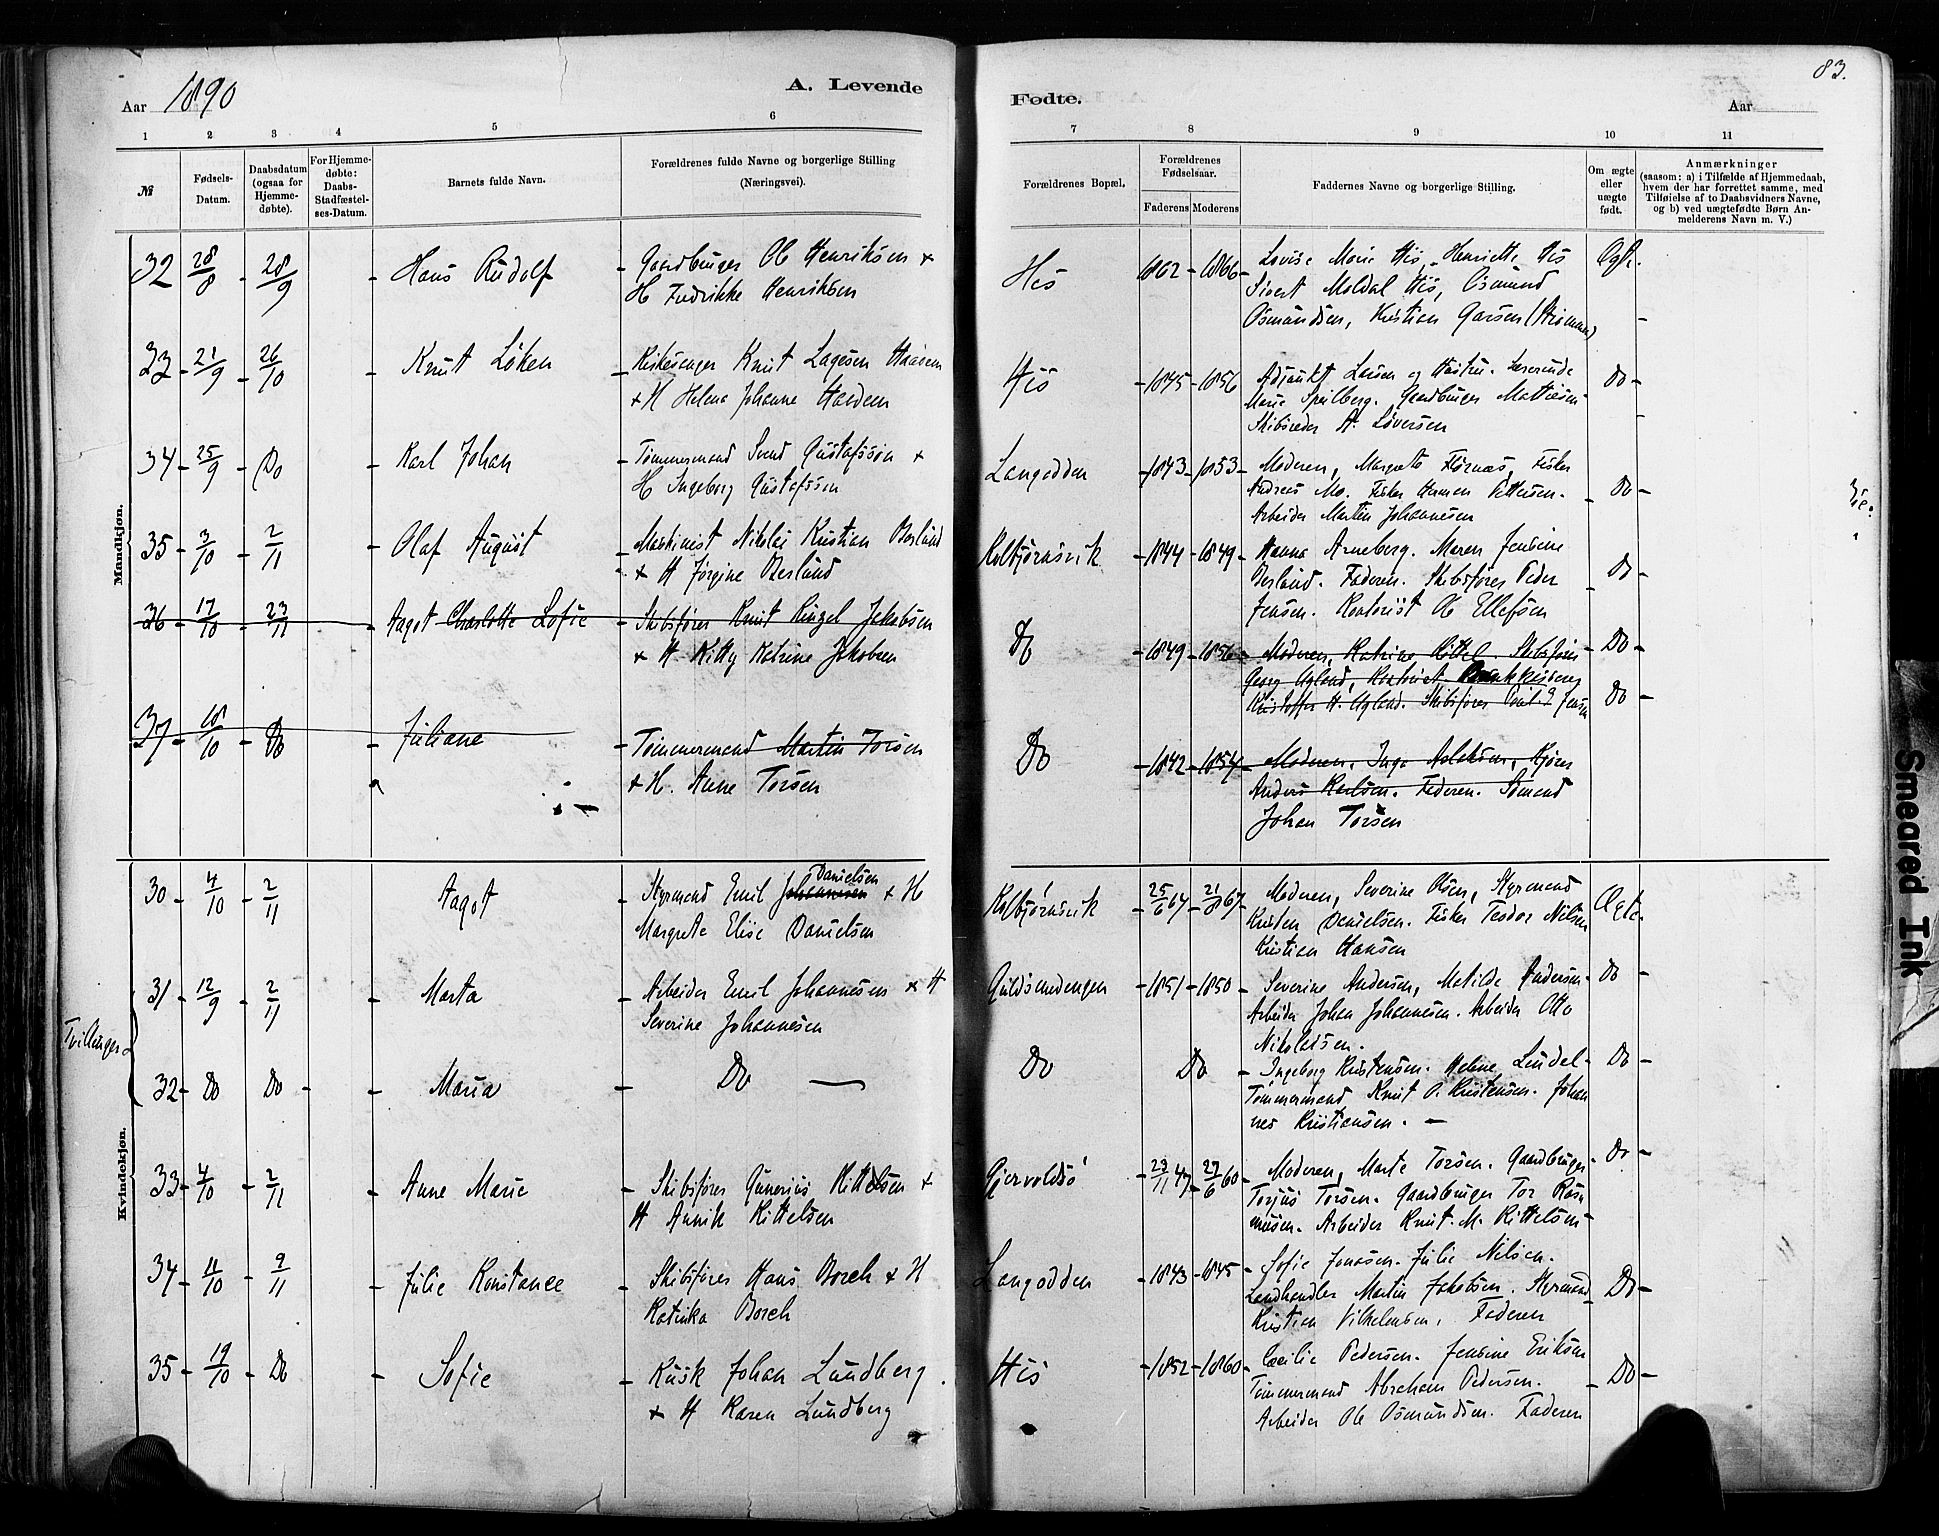 83.
Aar 1890
A. Levende
Fødte.
Aar
1 2 3 4 5 6 7 8 9 10 11
№
Fødsels-Datum.
Daabsdatum (ogsaa for Hjemme-døbte).
For Hjemme-døbte: Daabs-Stadfæstel-ses-Datum.
Barnets fulde Navn.
Forældrenes fulde Navne og borgerlige Stilling
(Næringsvei).
Forældrenes Bopæl.
Forældrenes Fødselsaar.
Faderens Moderens
Faddernes Navne og borgerlige Stilling.
Om ægte eller uægte født.
Anmærkninger
(saasom: a) i Tilfælde af Hjemmedaab,
hvem der har forrettet samme, med
Tilføielse af to Daabsvidners Navne,
og b) ved uægtefødte Børn An-
melderens Navn m. V.)
Mandkjøn.
32 28/8 - 28/9 - Hans Rudolf - Gaardbruger Ole Henriksen +
H Fredrikke Henriksen
His 1862 - 1866 - Lovise Marie His, Henriette His
Sivert Moldal His, Osmund
Osmundsen, Kristian Garsen
Ægte
33 - 21/9 - 26/10 - Knut Løken - Kirkesanger Knut Lagesen Haaven
+ H Helena Johanne Haaven
His - 1845 - 1856 Adjunkt Larsen og Hustru. Lærerinde
Marie Speilberg. Gaardbruger Mathiesen
Skibsreder A. SØversen
Do -
34 - 25/9 - Do - Karl Johan - Tømmermand Svend Gustafsson +
H Ingeborg Gustafsson
Langodden - 1843 - 1853 - Moderen, Margrete Flørnæs, Fisker
Andreas Mo. Fisker Herman Pettersen.
Arbeider Martin Johannesen
Do -
35 - 3/10 - 2/11 - Olaf August - Maskinist Nikolai Kristian Berlund
+ H Jørgine Berlund
Kolbjørnsvik - 1844 - 1849 - Hanna Arneberg. Maren Jensine
Berlund. Faderen. Skibsfører Peder
Jensen. Kontorist Ole Ellefsen
Do -
36 - 17/10 - 23/11 - Aagot Charlotte Sofie - Skibsfører Knut Ringel Jakobsen
+ H Kitty Katrine Jakobsen
Do - 1849 - 1856 - Moderen, Katrine Kittel Skibsfører
Georg Ugland, Kontorist
Kristoffer H. Ugland. Skibsfører Jensen
Do
Do -
37 - 18/10 - Do - Juliane - Tømmermand Martin Torsen
+ H. Anne Torsen
Do - 1842 - 1854 - Moderen, Inga Aslaksen, Kjører
Anders Karlsen. Faderen. Sømand
Johan Torsen
Kvindekjøn.
30 - 4/10 - 2/11 Aagot - Styrmand Emil Johannesen Danielsen + H
Margrete Elise Danielsen
Kolbjørnsvik - 25/6 64 - 21/8 67 - Moderen, Severine Olsen, Styrmand
Kristen Danielsen. Fisker Teodor Nilsen
Kristian Hansen
Ægte
Tvillinger
31 - 12/9 - 2/11 - Marta - Arbeider Emil Johannesen + H
Severine Johannesen
Guldsmedengen - 1851 - 1850 - Severine Andersen, Matilde Andersen
Arbeider Johan Johannesen. Arbeider Otto
Nikolaisen.
Do -
32 - Do - Do - - Maria - Do —
Do Do - Ingeborg Kristensen. Helene Lindel
Tømmermand Knut O. Kristensen. Johan
nes Kristiansen. —
Do -
33 - 4/10 - 2/11 - Anne Marie - Skibsfører Gunerius Kittelsen +
H Annik Kittelsen
Gjervoldsø - 23/11 47 - 27/6 60 - Moderen, Marte Torsen. Gaardbruger
Torjus Torsen. Gaardbruger Tor Ras
mussen. Arbeider Knut M. Kittelsen
Do -
34 - 11/10 - 9/11 - Julie Konstance - Skibsfører Hans Borch + H
Katinka Borch
Langodden - 1843 - 1845 - Sofie Jonasen. Julie Nilsen.
Landhandler Martin Jakobsen. Styrmand
Kristian Vilhelmsen, Faderen
Do -
35 - 19/10 - Do - Sofie - Kusk Johan Lundberg
+ H Karen Lundberg
His - 1852 - 1860 - Cecilie Pedersen. Jensine Eriksen
Tømmermand Abraham Pedersen.
Arbeider Ole Osmundsen. Faderen
Do -
Smeared Ink